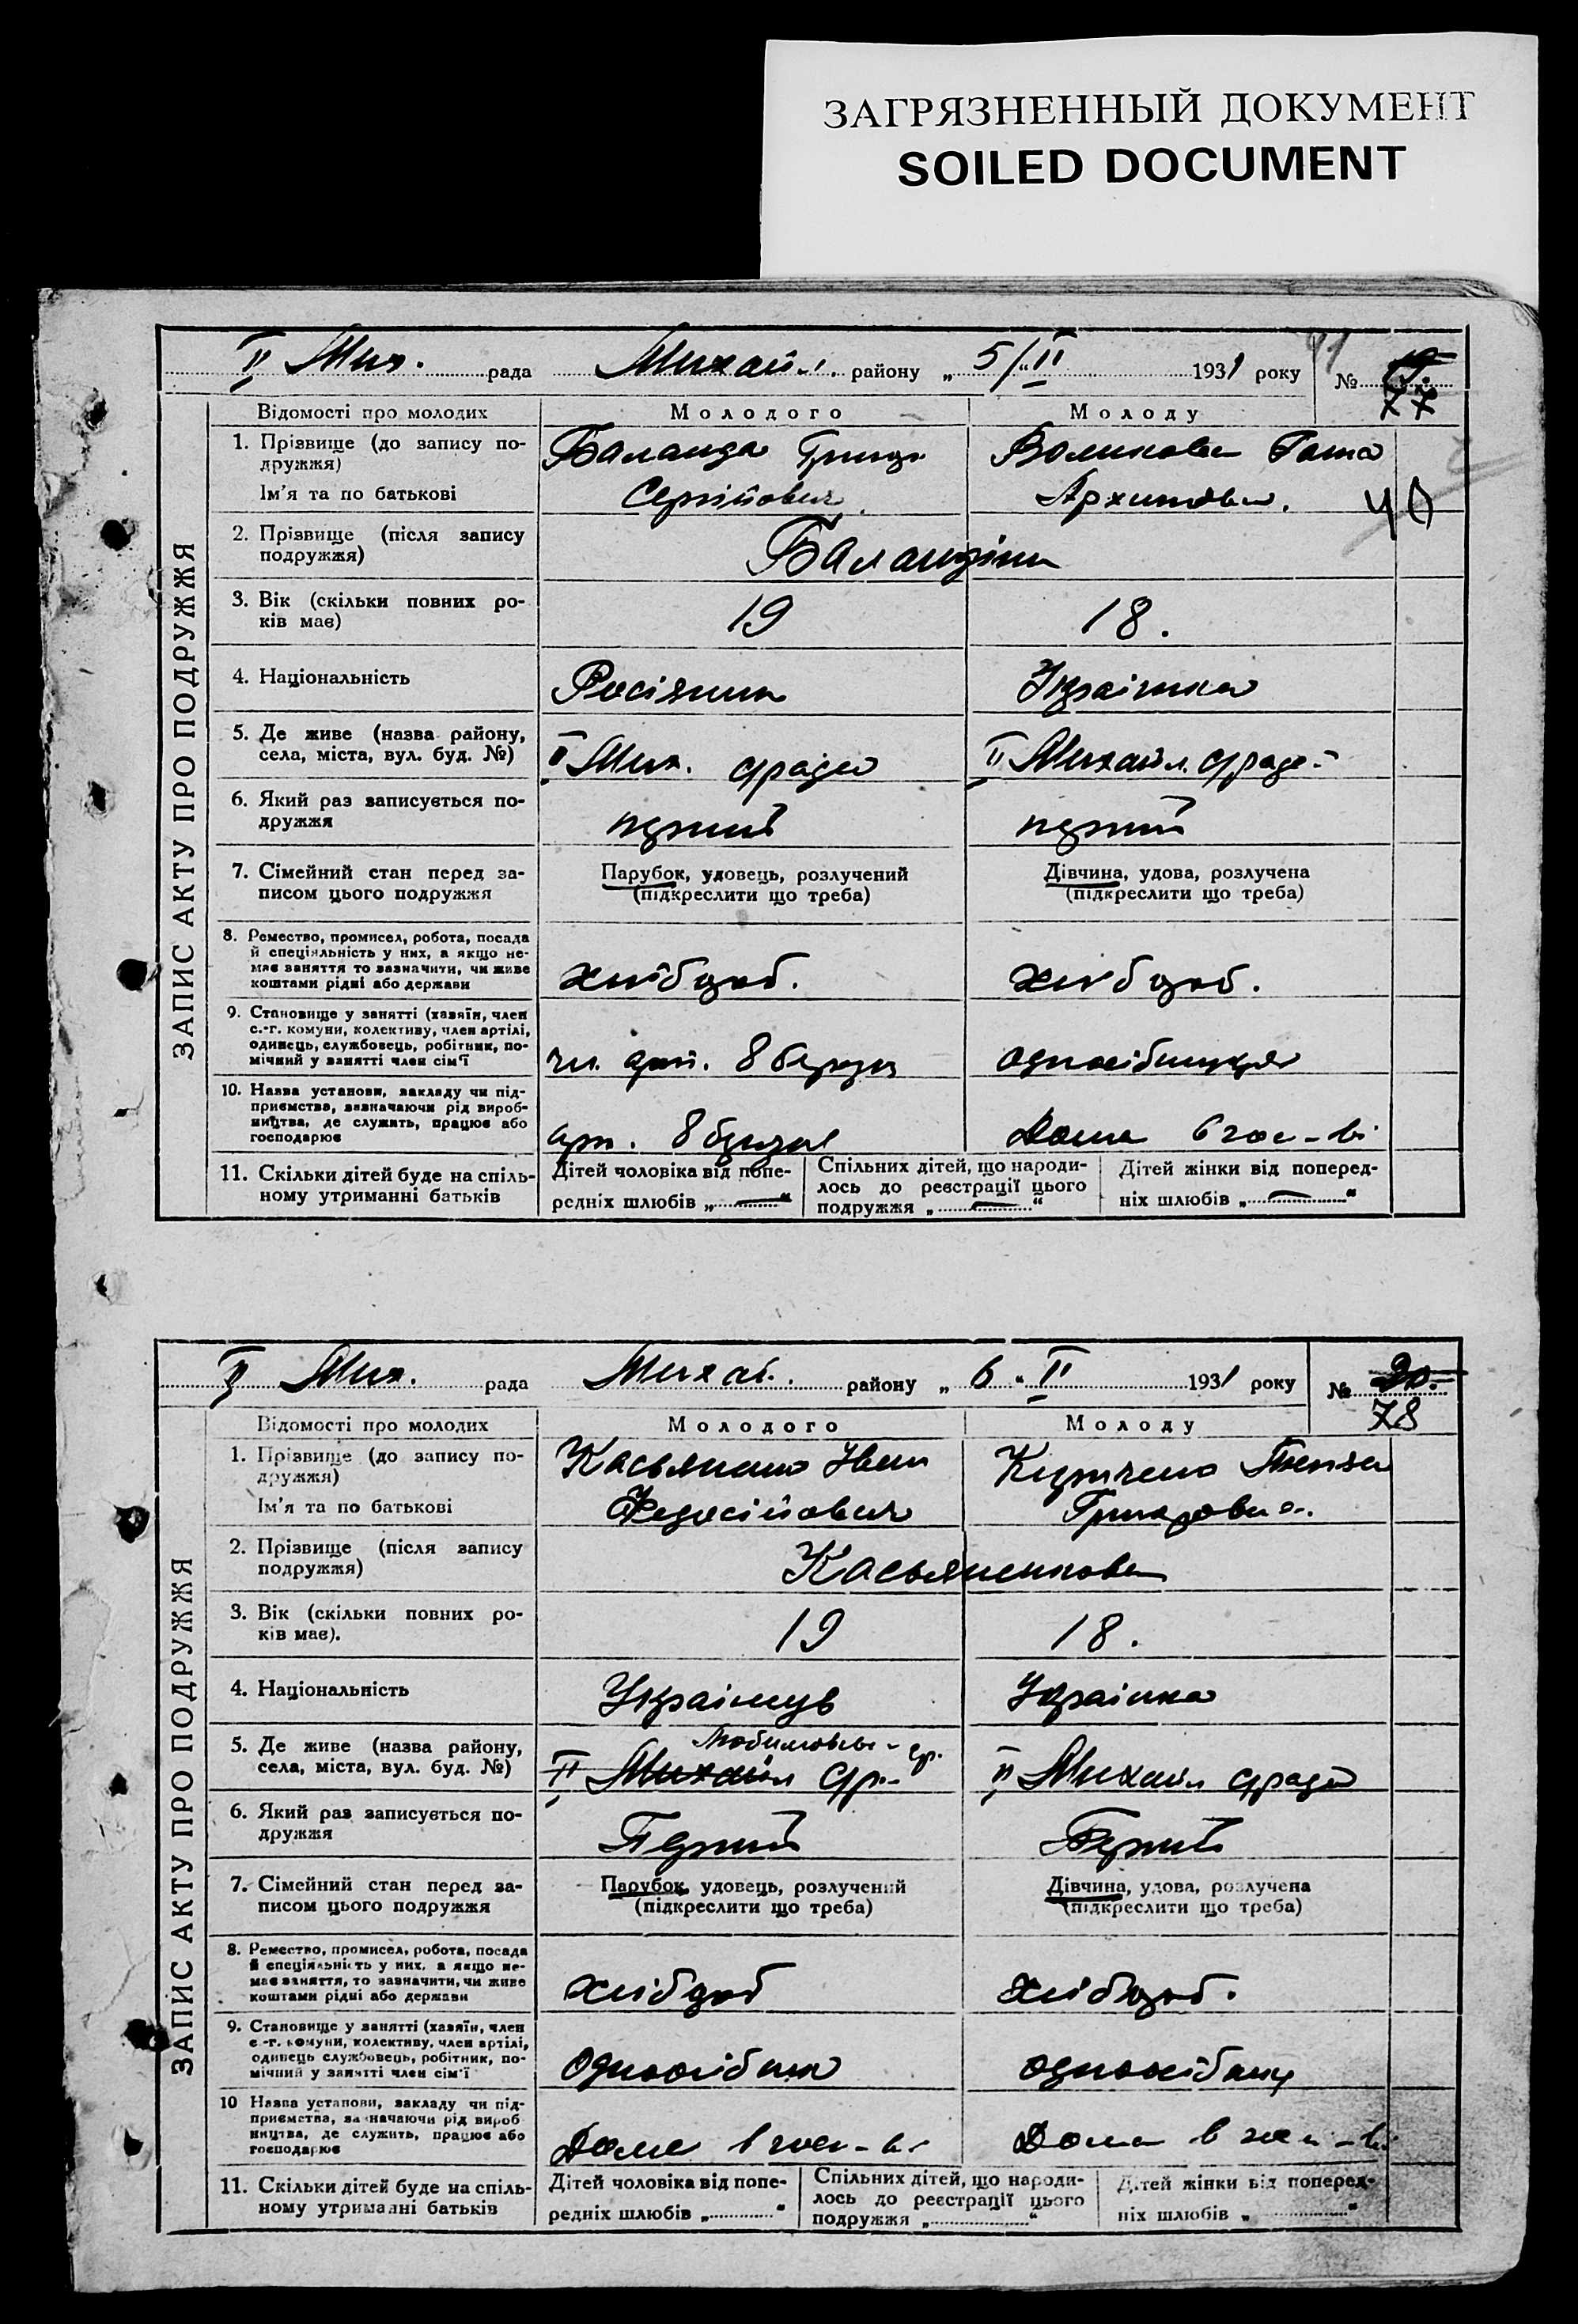 ЗАГРЯЗНЕННЫЙ ДОКУМЕНТ
SOILED DOCUMENT
ЗАПИС АКТУ ПРО ПОДРУЖЖЯ
II Мих. рада Михайл. району „ 5/“ II 1931 року № 19.
77
Відомості про молодих Молодого Молоду
1. Прізвище (до запису по-
дружжя)
Баланда Гриць
Ім'я та по батькові
Сергійович Архипівна.
40
2. Прізвище (після запису
подружжя)
3. Вік (скільки повних ро-
ків має)
19 18.
4. Національність Росіянин Українка
5. Де живе (назва району,
села, міста, вул. буд. №)
II Мих. с/рада II Михайл. с/рада
6. Який раз записується по-
дружжя
перший перший
7. Сімейний стан перед за-
писом цього подружжя
Парубок, удовець, розлучений
(підкреслити що треба)
Дівчина, удова, розлучена
(підкреслити що треба)
8. Ремество, промисел, робота, посада
й спеціяльність у них, а якщо не-
має заняття то зазначити, чи живе
коштами рідні або держави
хлібороб. хлібороб.
9. Становище у занятті (хазяїн, член
с.-г. комуни, колективу, член артілі,
одинець, службовець, робітник, по-
мічний у занятті член сім'ї
чл. арт. 8 березня
10. Назва установи, закладу чи під-
приємства, зазначаючи рід вироб-
ництва, де служить, працює або
господарює
арт. 8 березня Дома в гос-ві
11. Скільки дітей буде на спіль-
ному утриманні батьків
Дітей чоловіка від попе-
редніх шлюбів „ — “
Спільних дітей, що народи-
лось до реєстрації цього
подружжя „ — “
Дітей жінки від поперед-
ніх шлюбів „ — “
ЗАПИС АКТУ ПРО ПОДРУЖЖЯ
II Мих. рада Михай. району „ 6 “ II 1931 року № 20.
78
Відомості про молодих Молодого Молоду
1. Прізвище (до запису по-
дружжя)
Касьяненко Іван
Ім'я та по батькові
Федосійович
2. Прізвище (після запису
подружжя)
Касьяненкови
3. Вік (скільки повних ро-
ків має).
19 18.
4. Національність Українець Українка
5. Де живе (назва району,
села, міста, вул. буд. №)
II Михайл с/р. II Михайл с/рада
6. Який раз записується по-
дружжя
Перший Перший
7. Сімейний стан перед за-
писом цього подружжя
Парубок, удовець, розлучений
(підкреслити що треба)
Дівчина, удова, розлучена
(підкреслити що треба)
8. Ремество, промисел, робота, посада
й спеціяльність у них, а якщо не-
має заняття, то зазначити, чи живе
коштами рідні або держави
хлібороб хлібороб.
9. Становище у занятті (хазяїн, член
с.-г. комуни, колективу, член артілі,
одинець службовець, робітник, по-
мічний у занятті член сім'ї
10 Назва установи, закладу чи під-
приємства, зазначаючи рід вироб
ництва, де служить, працює або
господарює
Дома в гос-ві Дома в гос-ві
11. Скільки дітей буде на спіль-
ному утриманні батьків
Дітей чоловіка від попе-
редніх шлюбів „ “
Спільних дітей, що народи-
лось до реєстрації цього
подружжя „ “
Дітей жінки від поперед-
ніх шлюбів „ “